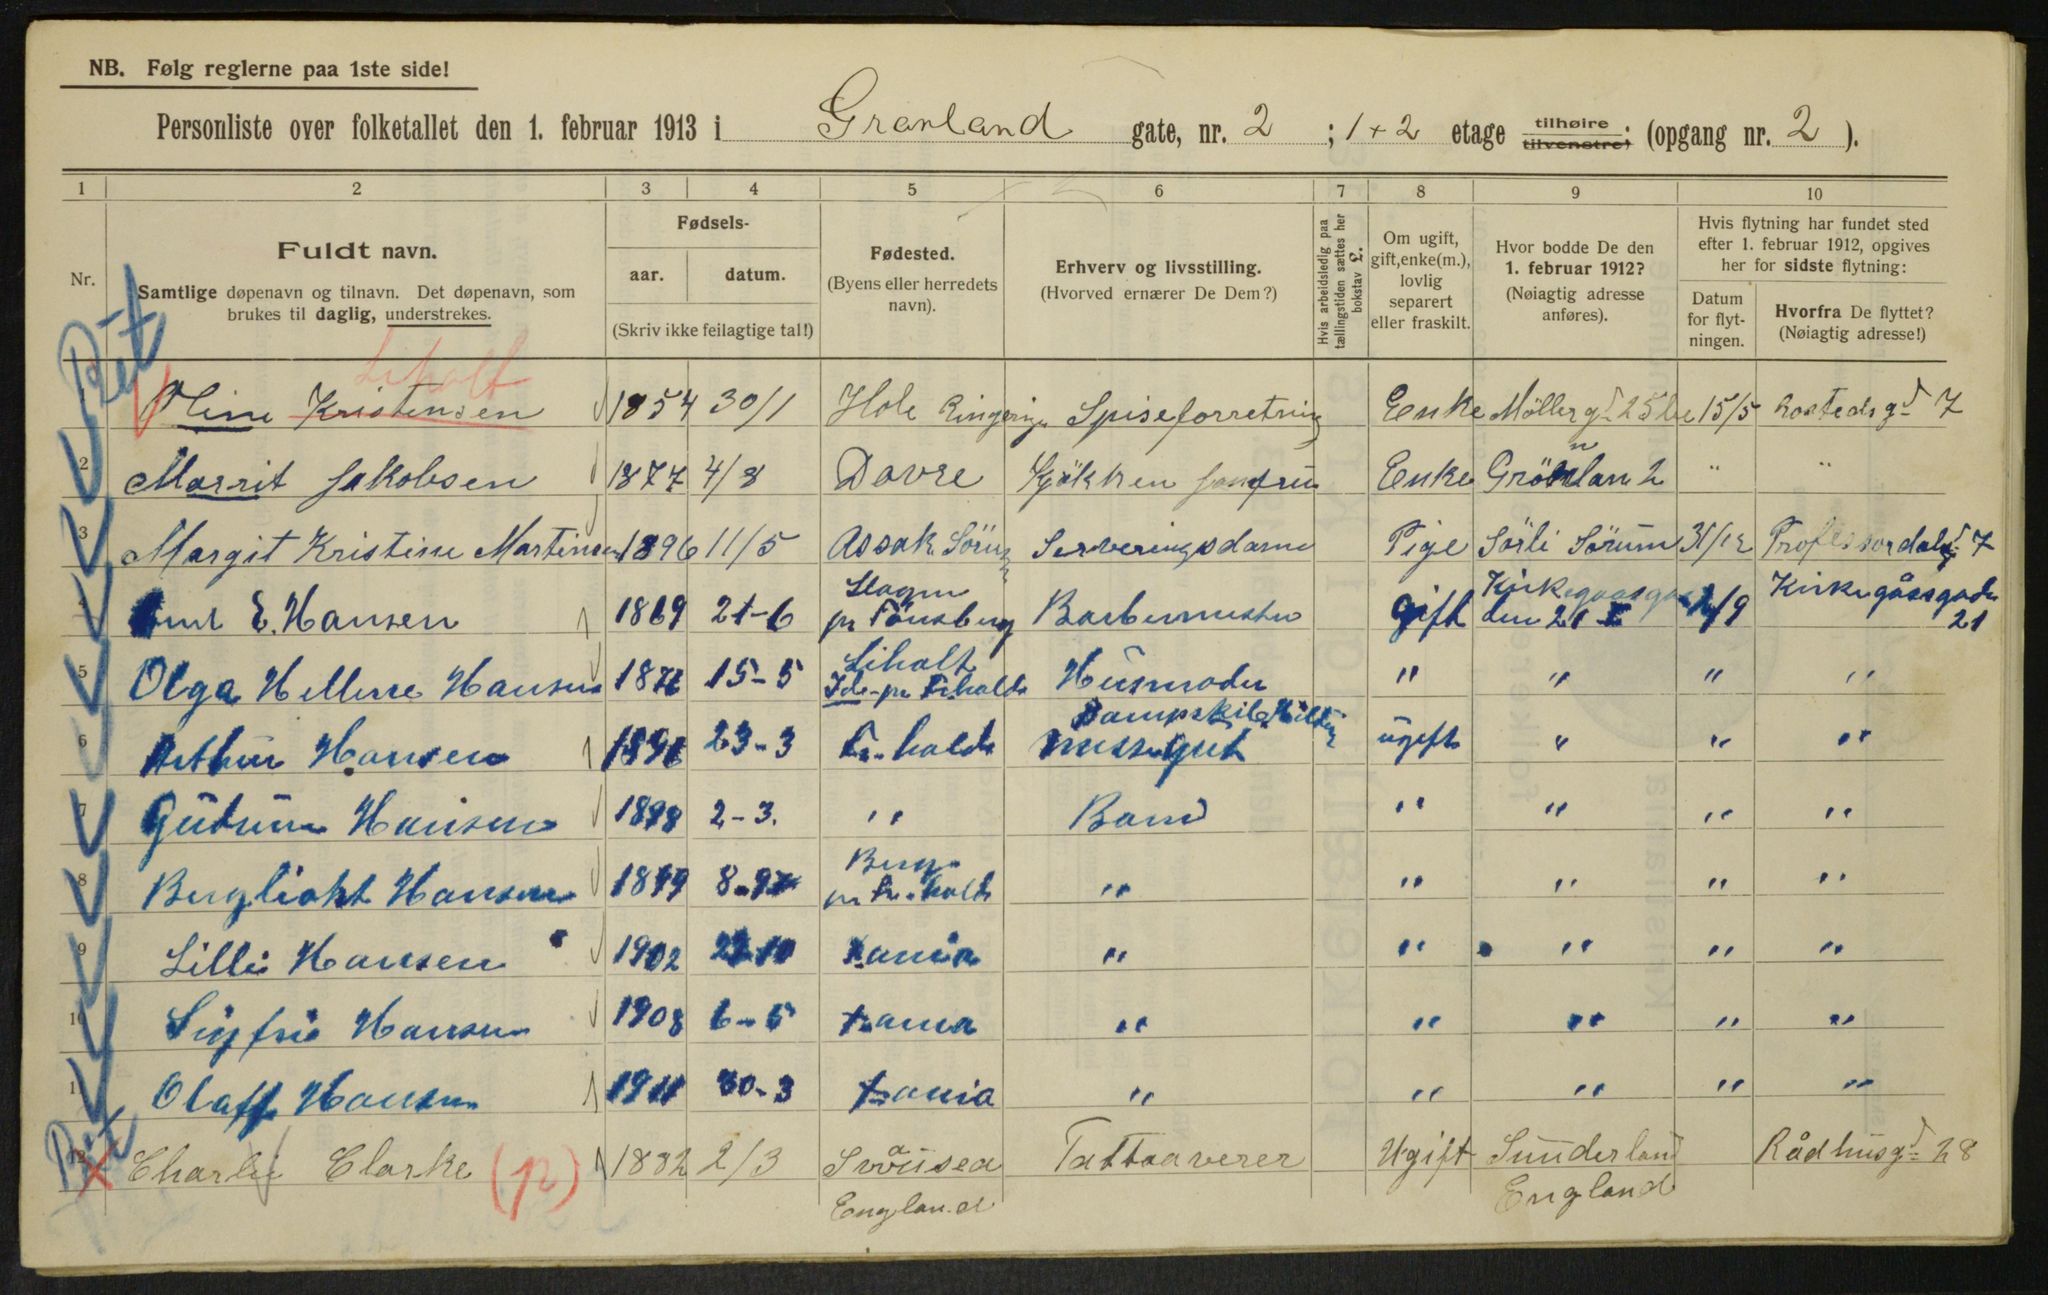 NB. Følg reglerne paa 1ste side!
Personliste over folketallet den 1. februar 1913 i Grønland gate, nr. 2 ; 1+2 etage tilhøire tilvenstre; (opgang nr. 2 ).
1 2 3 4 5 6 7 8 9 10
Nr.
Fuldt navn.
Samtlige døpenavn og tilnavn. Det døpenavn, som brukes til daglig, understrekes.
Fødsels-
aar. datum.
(Skriv ikke feilagtige tal!)
Fødested.
(Byens eller herredets navn).
Erhverv og livsstilling.
(Hvorved ernærer De Dem?)
Hvis arbeidsledig paa tællingstiden sættes her bokstav £.
Om ugift, gift, enke(m.), lovlig separert eller fraskilt.
Hvor bodde De den 1. februar 1912?
(Nøiagtig adresse anføres).
Hvis flytning har fundet sted efter 1. februar 1912, opgives her for sidste flytning:
Datum for flytningen.
Hvorfra De flyttet?
(Nøiagtig adresse!)
Liholt
Oline Kristensen 1854 30/1 Hole Spiseforretning Enke Möllergd 15/5 7
2 Marrit Jakobsen 1877 4/8 Dovre Kjökken jomfru Enke Grönlan 2 " "
3 Margit Kristine Martinsen 1896 11/5 Assak Sörum Serveringsdame Pige Sörli Sörum 31/12 7
4 E. Hansen 1869 21-6 Slagen pr Tönsberg Barbermester gift 21 /9 Kirkegåsgaden 21
5 Olga Hansen 187 15-5 Ide pr Fr.halds Husmoder " " " "
6 Arthur Hansen 23-3 Fr.halds ugift " " "
7 Gudrun Hansen 1898 2-3. " Barn " " " "
8 Berghlioht Hansen 1899 Berg pr Fr.halds " " " " "
9 Lilli Hansen 1902 Kania " " " " "
10 Sigfrid Hansen 1908 6-5 Kania " " " " "
11 Olaff Hansen 1911 30-3 Kania " " " " "
12 Charlie Clarke (p) 1882 2/3 Svansea England Tattoaverer Ugift Sunderland England Rådhusgd 28